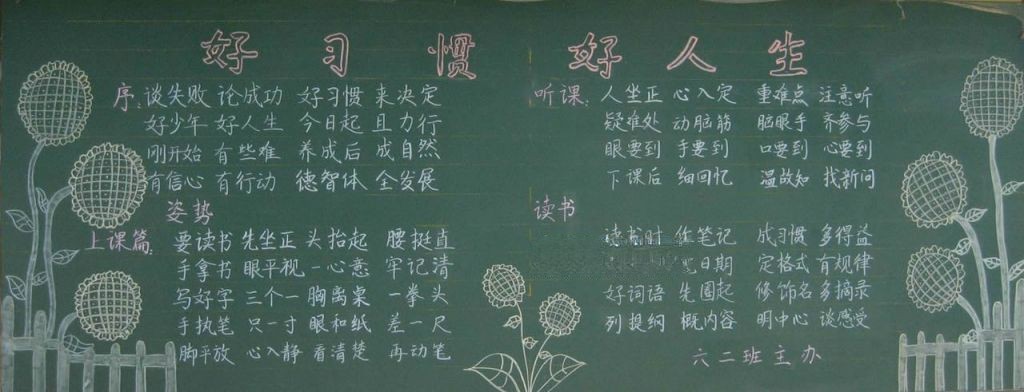 好习惯 好人生
序：谈失败 论成功 好习惯 来决定
好少年 好人生 今日起 且力行
刚开始 有些难 养成后 成自然
有信心 有行动 德智体 全发展
姿势
上课篇：要读书 先坐正 头抬起 腰挺直
手拿书 眼平视 一心意 牢记清
写好字 三个一 胸离桌 一拳头
手执笔 只一寸 眼和纸 差一尺
脚平放 心入静 看清楚 再动笔
听课：人坐正 心入定 重难点 注意听
疑难处 动脑筋 脑眼手 齐参与
眼要到 手要到 口要到 心要到
下课后 细回忆 温故知 找新问
读书
读书时 作笔记 成习惯 多得益
日期 定格式 有规律
好词语 先圈起 修饰名 多摘录
列提纲 概内容 明中心 谈感受
六二班主办